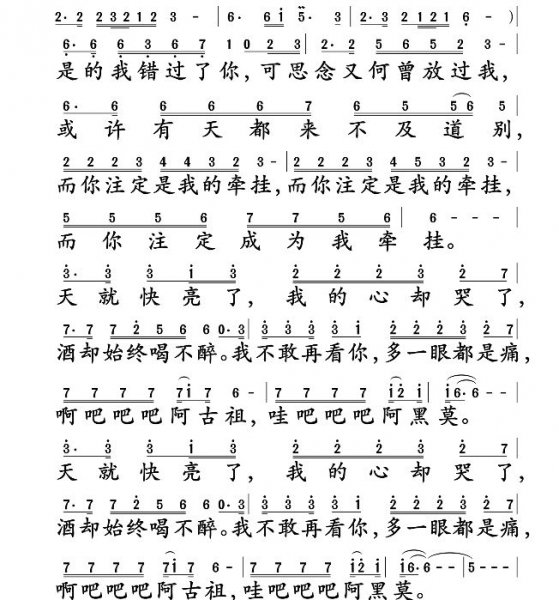 2· 2 2 3 2 1 2 3 - | 6· 6 i 5· 3 | 2· 3 2 1 2 1 6 - )
6· 6 6 3 6 7 | 1 0 2 3 2· 2 | 5 5 6 5 2 3 - |
是的我错过了你,可思念又何曾放过我,
6· 6 6 6 6 7 | 6 5 5 5 6 5 |
或许有天都来不及道别,
2 2 2 3 4 4 3 2 3 - | 2 2 2 3 4 5 3 2 3 - |
而你注定是我的牵挂,而你注定是我的牵挂,
5 5 5 6 7 7 5 6 | 6 - - - |
而你注定成为我牵挂。
3· 3 3 i 3 2 2 2 3 2 7 |
天就快亮了,我的心却哭了,
7· 7 7 2 5 6 6 0· 3 | 3 3 3 3 i 2 2 2 3 2 7 |
酒却始终喝不醉。我不敢再看你,多一眼都是痛,
7 7 7 7 7 i 7 6 - | 7 7 7 7 i 2 i | i 6· 6 - - |
啊吧吧吧阿古祖,哇吧吧吧阿黑莫。
3· 3 3 i 3 2 2 2 3 2 7 |
天就快亮了,我的心却哭了,
7· 7 7 2 5 6 6 0· 3 | 3 3 3 3 i 2 2 2 3 2 7 |
酒却始终喝不醉。我不敢再看你,多一眼都是痛,
7 7 7 7 7 i 7 6 - | 7 7 7 7 i 2 i | i 6· 6 - - | 5 - - - |
啊吧吧吧阿古祖,哇吧吧吧阿黑莫。